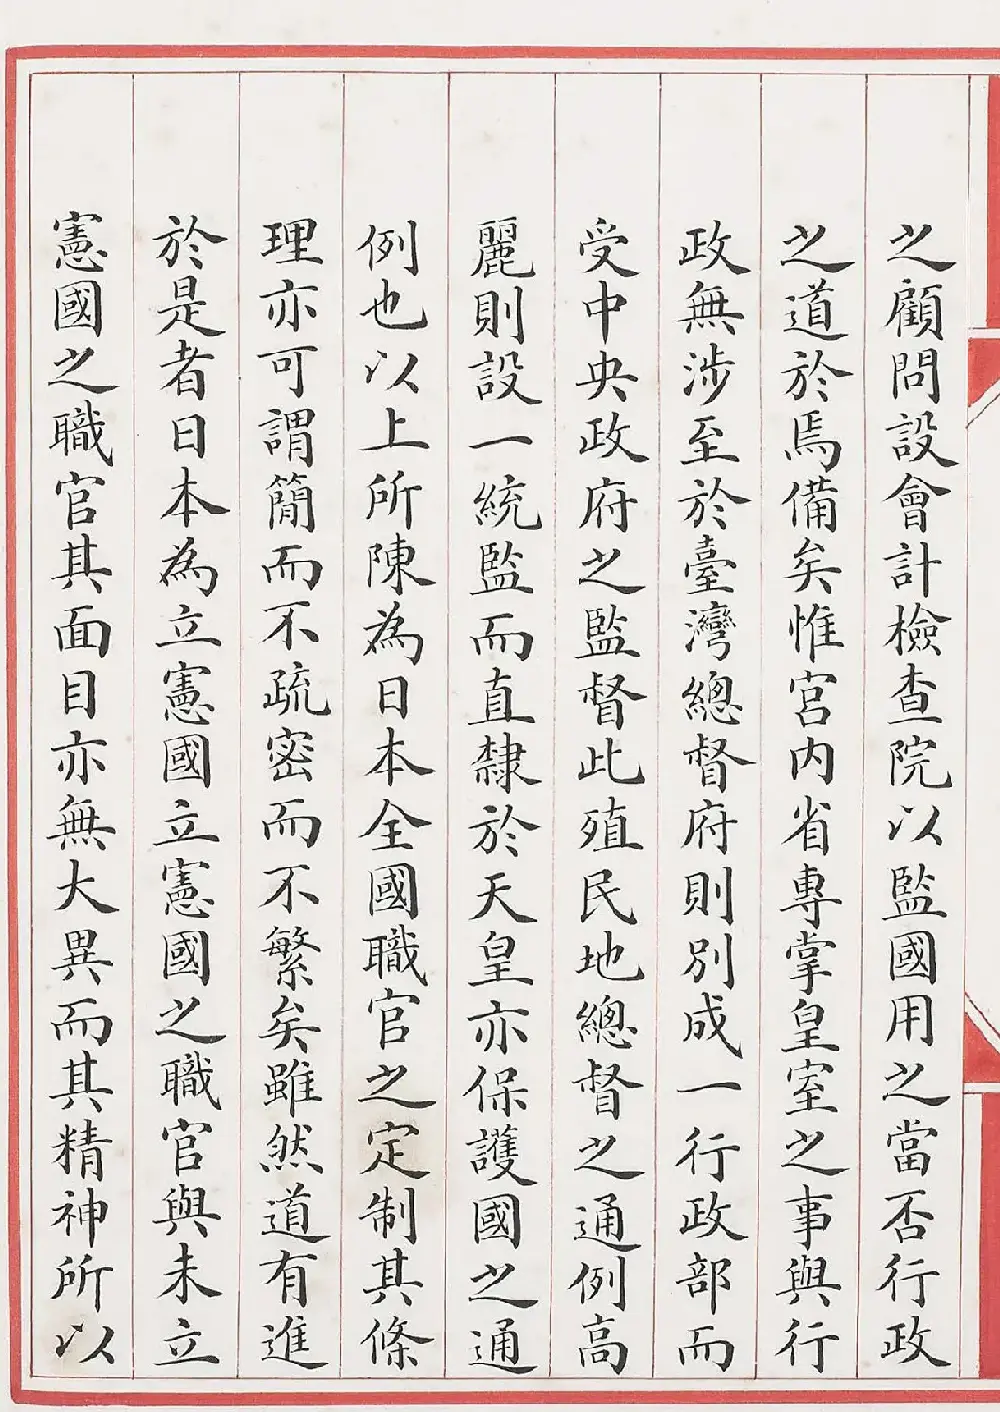 之顧問設會計檢查院以監國用之當否行政
之道於焉備矣惟宮内省專掌皇室之事與行
政無涉至於臺灣總督府則別成一行政部而
受中央政府之監督此殖民地總督之通例高
麗則設一統監而直隸於天皇亦保護國之通
例也以上所陳為日本全國職官之定制其條
理亦可謂簡而不疏密而不繁矣雖然道有進
於是者日本為立憲國立憲國之職官與未立
憲國之職官其面目亦無大異而其精神所以